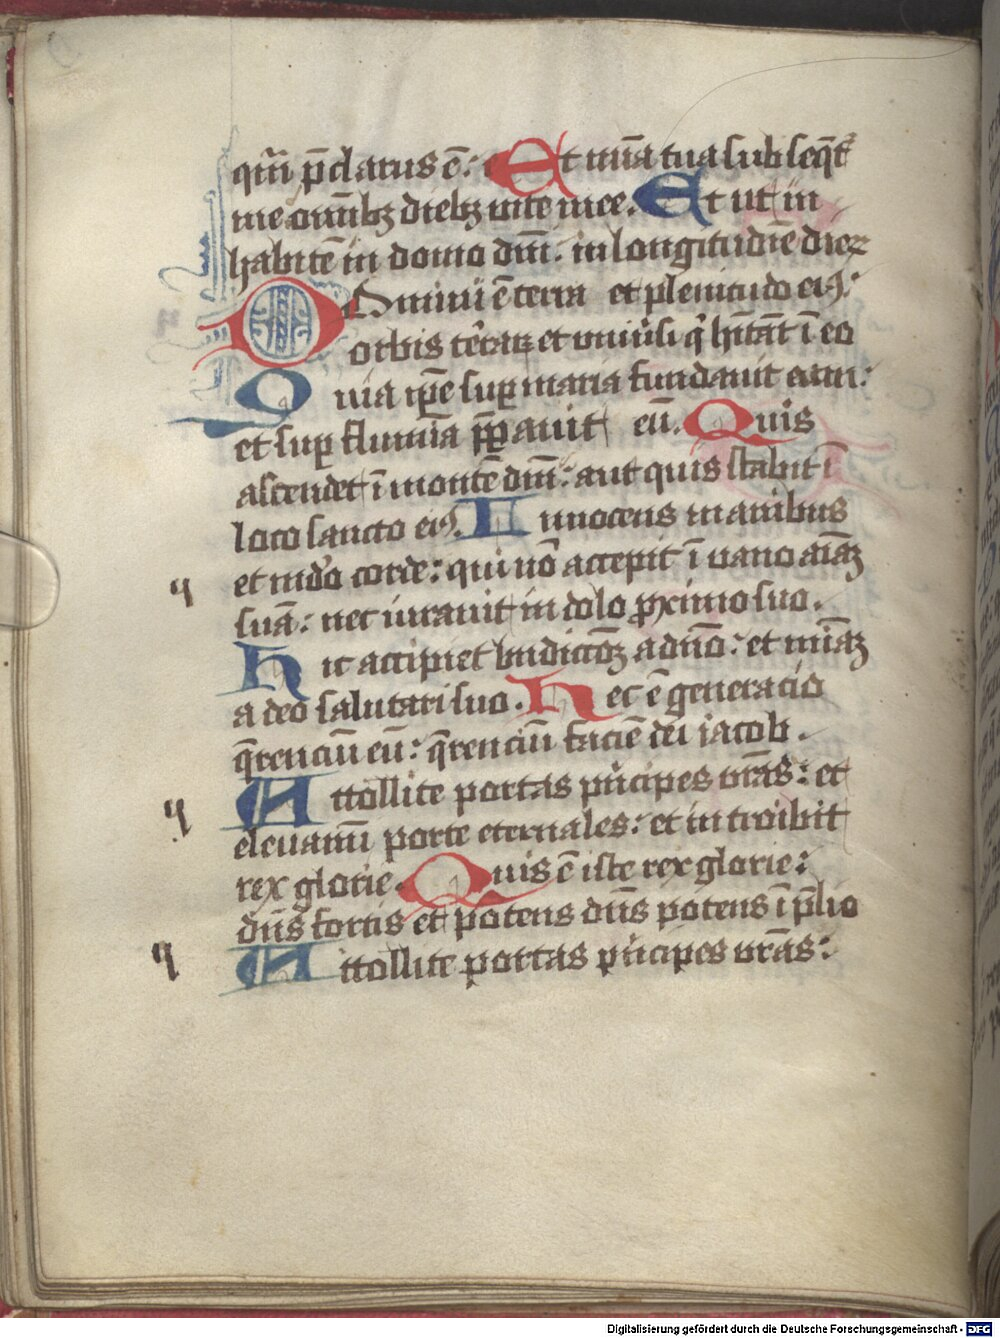 qm̃ p̄clarus ē: Et mīa tua subseq̄t᷑
me om̄ibꝫ diebꝫ uite mee. Et ut in
habitē in domo dm̄i: in longitudiē dieꝝ
Domini ē terra et plenitudo eiꝰ:
orbis t̄raꝝ et uniu̓si q̓ hītāt ī eo
Quia ip̄e suꝑ maria fundauit eum:
et suꝑ flumīa p̄ꝑauit eū. Quis
ascendet ī montē dm̄i: aut quis stabit ī
loco sancto eiꝰ. Innocens manibus
et mūdo corde: qui nō accepit ī uano aīaꝫ
suā: nec iurauit in dolo ꝓximo suo.
Hic accipiet bn̄dictōꝫ a dn̄o: et mīaꝫ
a deo salutari suo. Hec ē generacio
q̄renciū eū: q̄renciū faciē dei iacob.
Attollite portas pͥncipes ur̄as: et
eleuamī porte eternales: et introibit
rex glorie. Quis ē iste rex glorie:
dn̄s fortis et potens dn̄s potens ī p̄lio
Attollite portas pͥncipes ur̄as:
Digitalisierung gefördert durch die Deutsche Forschungsgemeinschaft - DFG